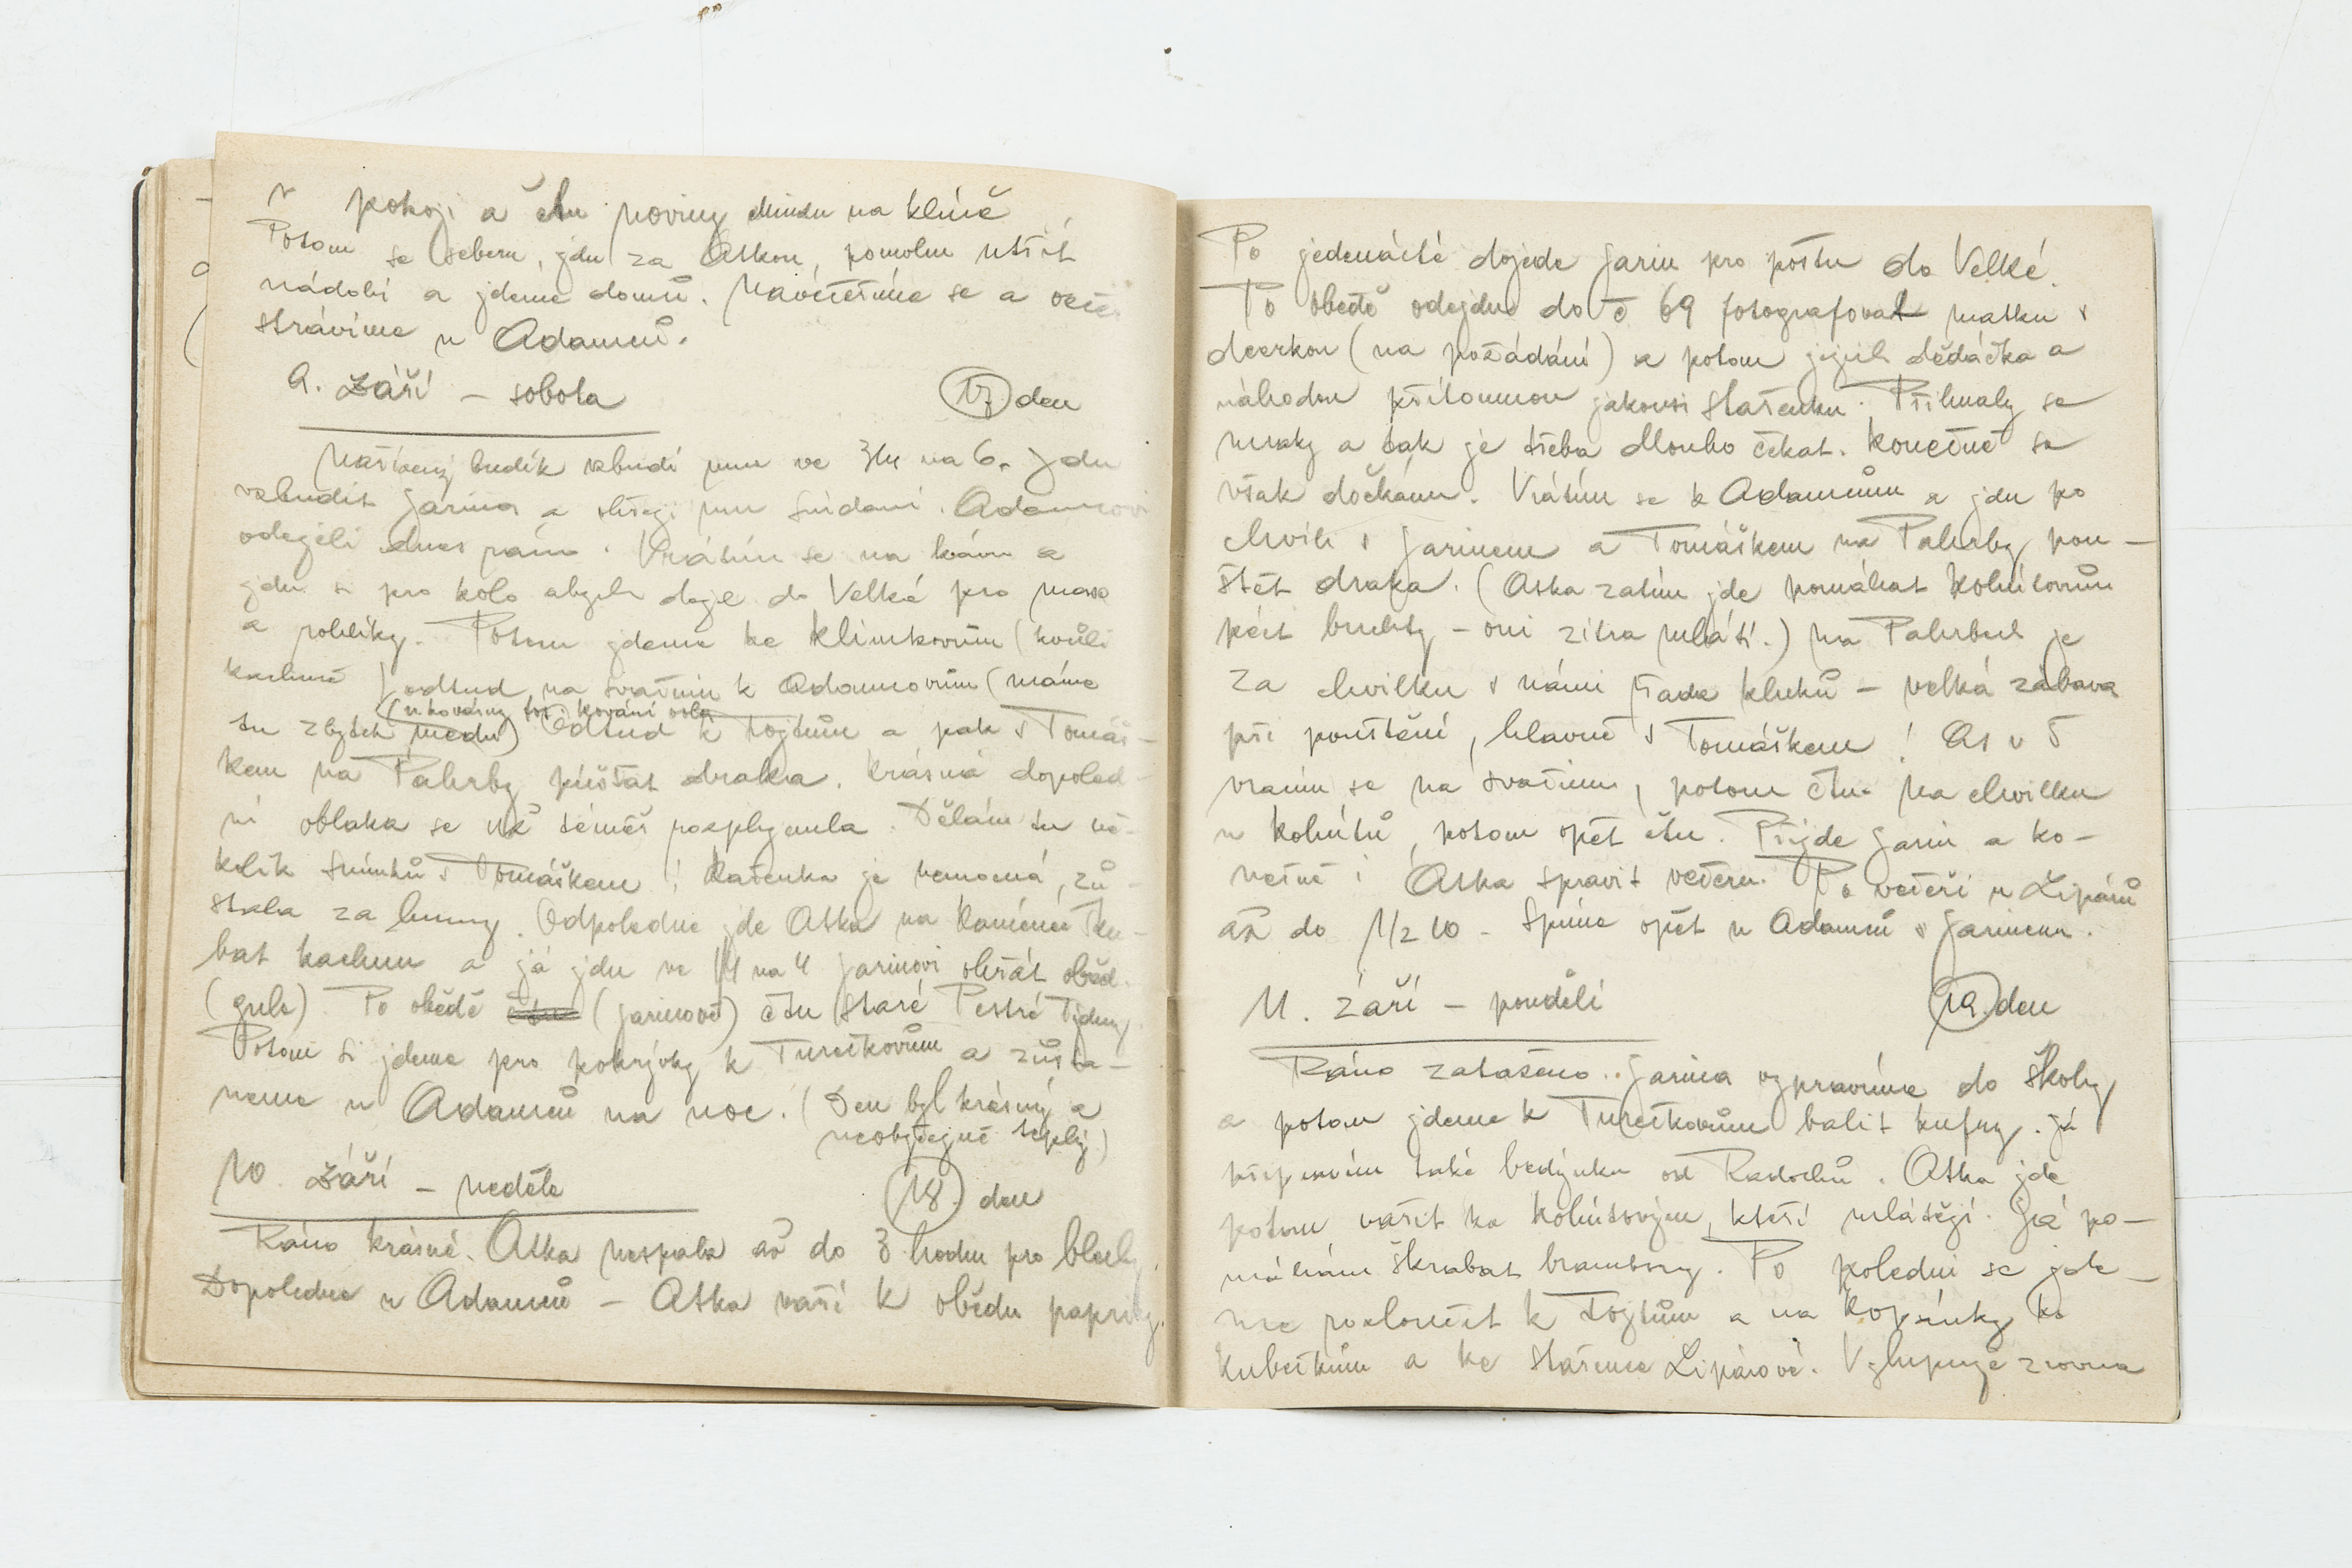 v pokoji a čtu noviny Mindu na klíně
Potom se seberu, jdu za Atkou, pomohu utřít
nádobí a jdeme domů. Navečeříme se a večer
strávíme u Adamců.
9. Září – sobota 17. den
Nařízený budík vzbudí mne ve 3/4 na 6. Jdu
vzbudit Jarina a ohřeji mu snídani. Adamcovi
odejeli dnes ráno. Vrátím se na kávu a
jdu si pro kolo abych doje do Velké pro maso
a rohlíky. Potom jdeme ke Klimkovům (kvůli
kachně) odtud na svačinu k Adamcovům (máme
(u kovárny fot. kování vola
tu zbytek medu) Odtud k Tojtům a pak s Tomáš-
kem na Pahrby púšťat draka. Krásná dopoled-
ní oblaka se už téměř rozplynula. Dělám tu ně-
kolik snímků s Tomáškem! Kačenka je nemocná, zů-
stala za humny. Odpoledne jde Atka na Kamenec šku-
bat kachnu a já jdu ve 1/4 na 4 Jarinovi ohřát oběd.
(gulo) Po obědě čtu (Jarinově) čtu staré Pestré Týdny.
Potom si jdeme pro pokrývky k Turečkovům a zůsta-
neme u Adamců na noc. (Den byl krásný a
neobyčejně teplý)
10. Září – neděle 18. den
Ráno krásné. Atka nespala až do 3 hodin pro blechy.
Dopoledne u Adamců – Atka vaří k obědu papriky.
Po jedenácté dojede Jarin pro poštu do Velké.
Po obědě odejdu do č 69 fotografovat matku s
dcerkou (na požádání) a potom jejich dědáčka a
náhodou přítomnou jakousi stařenku. Přihnaly se
mraky a tak je třeba dlouho čekat. Konečně se
však dočkám. Vrátím se k Adamcům a jdu po
chvíli s Jarinem a Tomáškem na Pahrby pou-
štět draka. (Atka zatím jde pomáhat Kohútovům
péct buchty – oni zítra mlátí.) Na Pahrbech je
za chvilku s námi řada kluků – velká zábava
při pouštění, hlavně s Tomáškem! As v 5
vracím se na svačinu, potom čtu. Na chvilku
u Kohútů, potom opět čtu. Přijde Jarin a ko-
nečně i Atka spravit večeru. Po večeři u Lipárů
až do 1/2 10 – Spíme opět u Adamců s Jarinem.
11. září – pondělí 19. den
Ráno zataženo. Jarina vypravíme do školy
a potom jdeme k Turečkovům balit kufry. Já
připravím také bedýnku od Radochů. Atka jde
potom vařit ke Kohútovým, kteří mlátějí. Já po-
máhám škrabat brambory. Po poledni se jde-
me rozloučit k Tojtům a na Kopánky ke
Kubečkům a ke stařence Lipárové. Vzlupuje zrovna